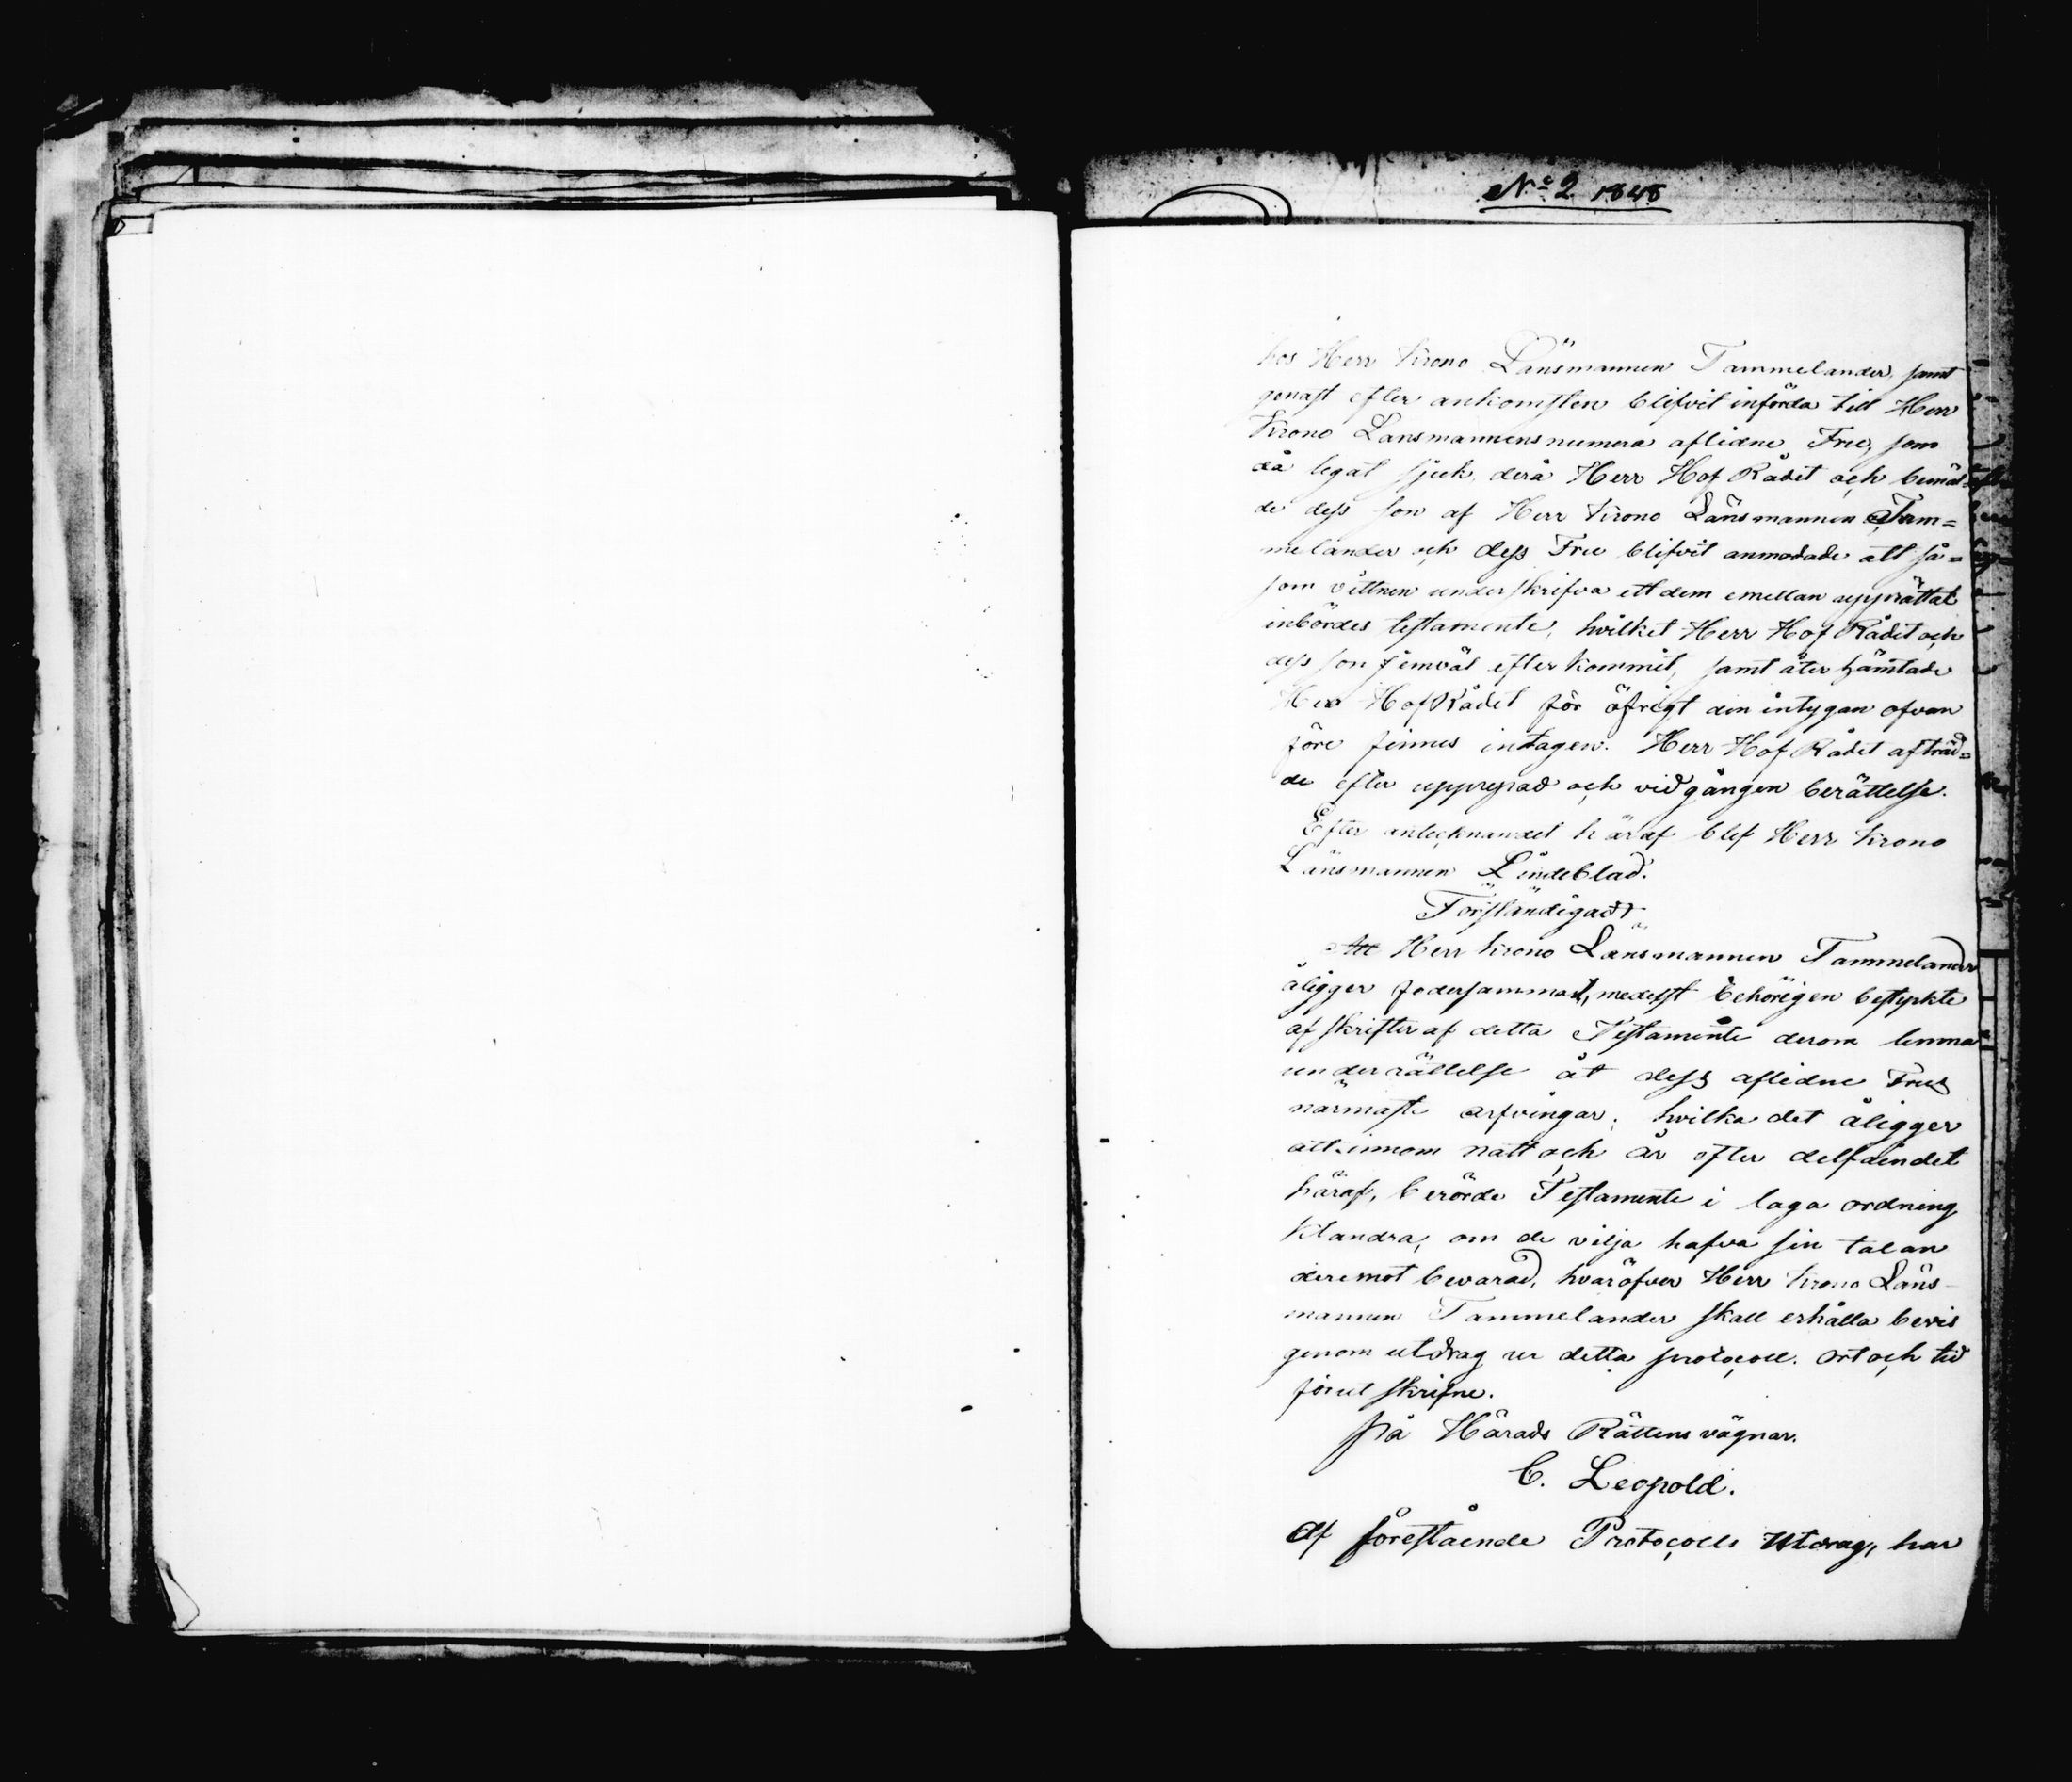 No 2 1848
hos Herr Krono Länsmannen Tammelander, samt
genast efter ankomsten blifvit införda till Herr
Krono Länsmannens numera aflidne Fru, som
då legat sjuk, derå Herr Hof Rådet och bemäl=
de dess son af Herr Krono Länsmannen Tam=
melander och dess Fru blifvit anmodade att så=
som vittnen underskrifva ett dem emellan upprättat
inbördes testamente, hvilket Herr Hof Rådet och
dess son jemväl efterkommit, samt åter hämtade
Herr Hof Rådet för öfrigt den intygan ofvan
före finnes intagen. Herr Hof Rådet afträd=
de efter upprepad och vidgången berättelse.
Efter antecknandet häraf blef Herr Krono
Länsmannen Lindeblad.
Förständigadt
Att Herr Krono Länsmannen Tammelander
åligger fodersammast, medelst behörigen bestyrkte
afskrifter af detta Testamente derom lemna
underrättelse åt dess aflidne Frus
närmaste arfvingar, hvilka det åligger
att innom natt och år efter delfåendet
häraf, berörde Testamente i laga ordning
klandra, om de vilja hafva sin talan
deremot bevarad, hvaröfver Herr Krono Läns-
mannen Tammelander skall erhålla bevis
genom utdrag ur detta protocoll. Ort och tid
förut skrifne.
På Härads Rättens vägnar.
C. Leopold.
Af förestående Protocolls Utdrag, har